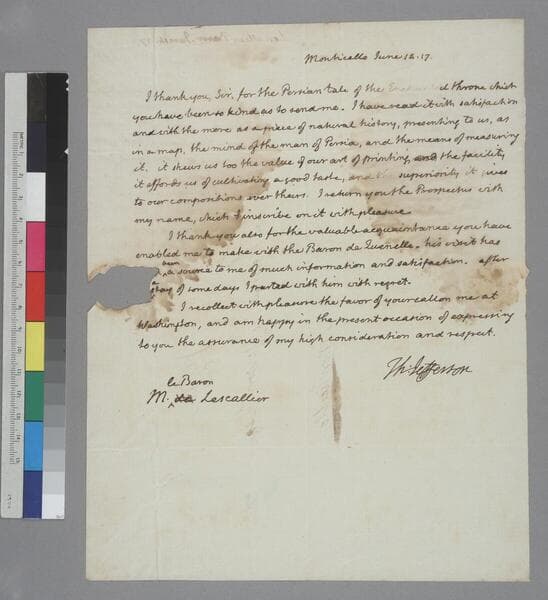 Monticello June 12. 17.
I thank you, Sir, for the Persian tale of the throne which
you have been so kind as to send me. I have read it with satisfaction
and with the more as a piece of natural history, presenting to us, as
in a map, the mind of the man of Persia, and the means of measuring
it. it shews us too the value of our art of printing, and the facility
it affords us of cultivating a good taste, and superiority it gives
to our compositions over theirs. I return you the Prospectus with
my name, which I inscribe on it with pleasure.
I thank you also for the valuable acquaintance you have
enabled me to make with the Baron de Quenelle. his visit has
a source to me of much information and satisfaction. after
stay of some days I parted with him with regret.
I recollect with pleasure the favor of your call on me at
Washington, and am happy in the present occasion of expressing
to you the assurance of my high consideration and respect.
Th: Jefferson
le Baron
M. de Lescallier